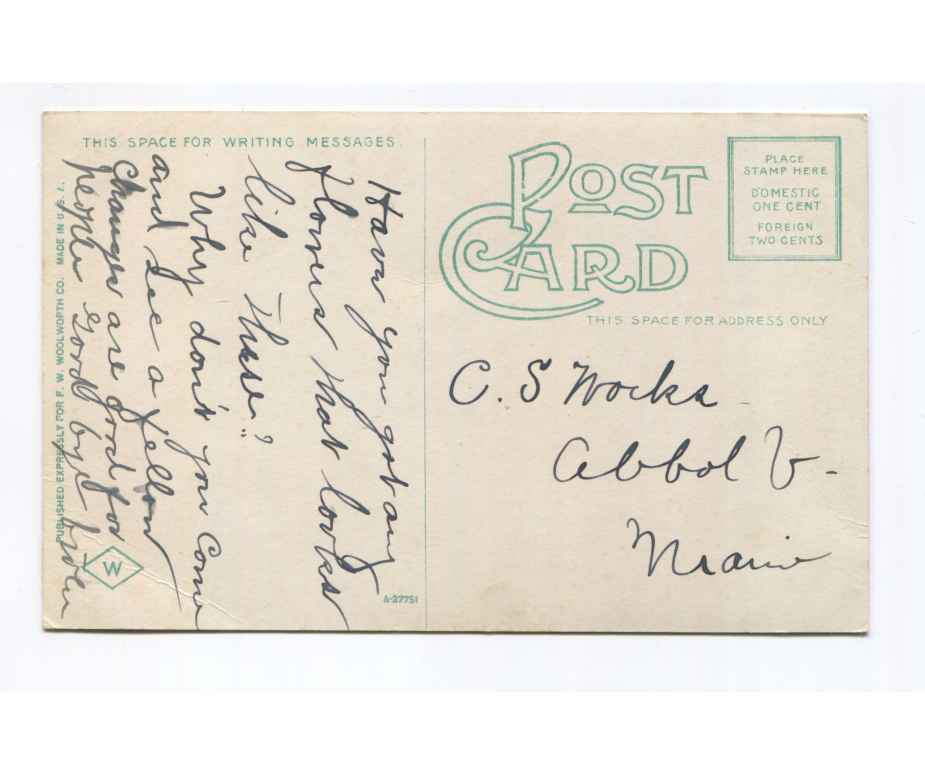 THIS SPACE FOR WRITING MESSAGES
Have you got any
flowers that looks
like these?
Why don't you come
and see a fellow
Changes are good for
people Good bye from
PUBLISHED EXPRESSLY FOR F. W. WOOLWORTH CO. MADE IN U. S. A.
W
A-27751
POST
CARD
PLACE
STAMP HERE
DOMESTIC
ONE CENT
FOREIGN
TWO CENTS
THIS SPACE FOR ADDRESS ONLY
C. S
Abbot V-
Maine